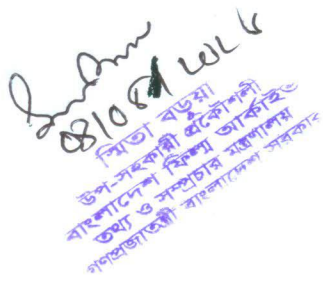 08/08/2026
স্মিতা বড়ুয়া
উপ-সহকারী প্রকৌশলী
বাংলাদেশ ফিল্ম আর্কাইভ
তথ্য ও সম্প্রচার মন্ত্রণালয়
গণপ্রজাতন্ত্রী বাংলাদেশ সরকার